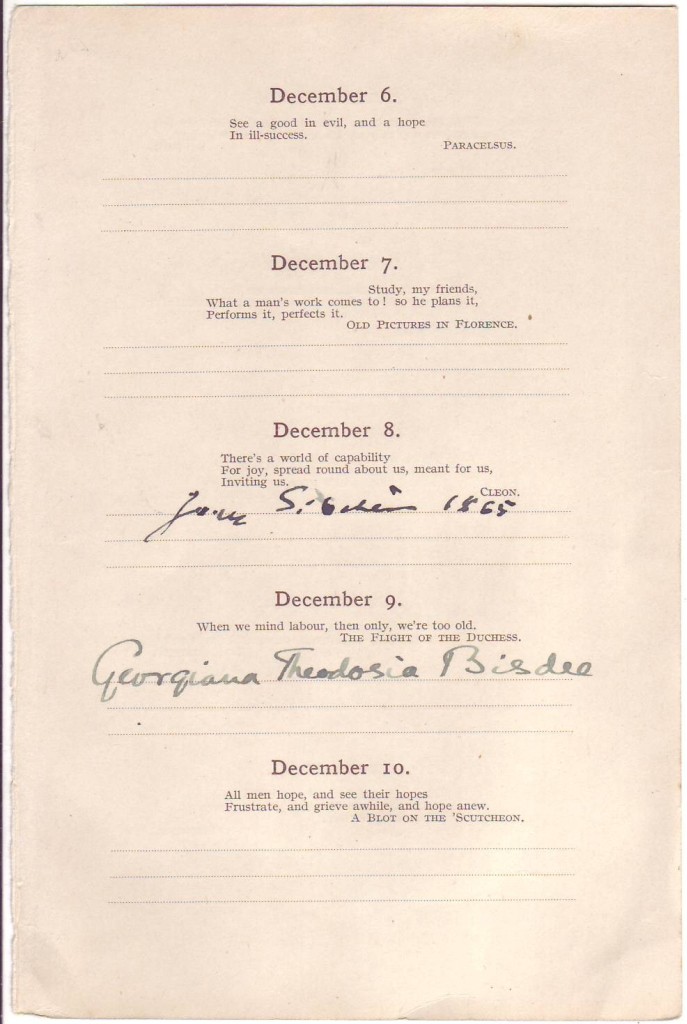 December 6.
See a good in evil, and a hope
In ill-success.
PARACELSUS.
December 7.
Study, my friends,
What a man's work comes to! so he plans it,
Performs it, perfects it.
OLD PICTURES IN FLORENCE.
December 8.
There's a world of capability
For joy, spread round about us, meant for us,
Inviting us.
CLEON.
Jean Sibelius 1865
December 9.
When we mind labour, then only, we're too old.
THE FLIGHT OF THE DUCHESS.
Georgiana Theodosia Bisdee
December 10.
All men hope, and see their hopes
Frustrate, and grieve awhile, and hope anew.
A BLOT ON THE 'SCUTCHEON.